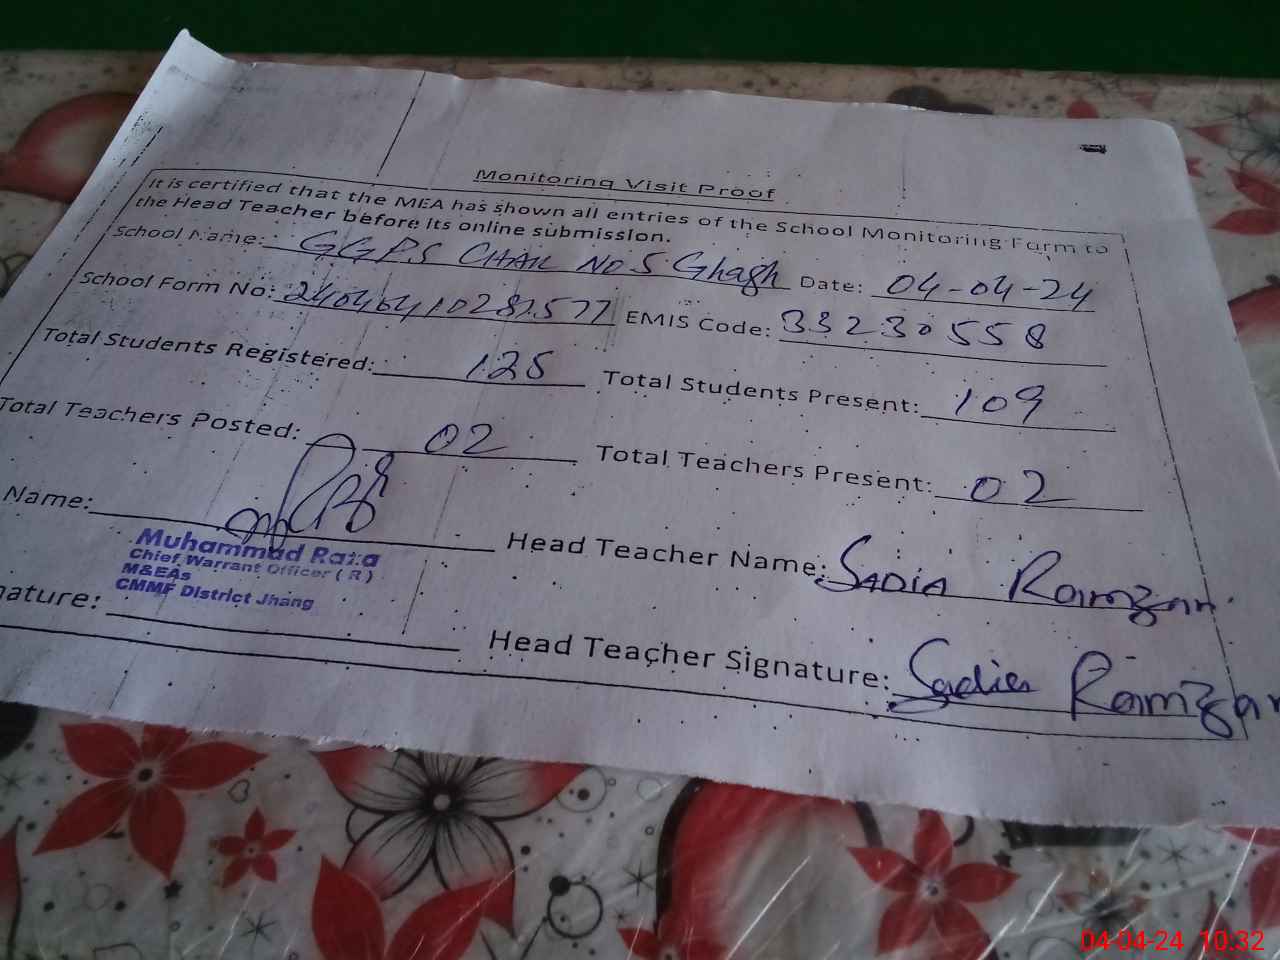 Monitoring Visit Proof
It is certified that the MEA has shown all entries of the School Monitoring Form to
the Head Teacher before its online submission.
School Name: GGPS CHAK NO 5 Ghagh Date: 04-04-24
School Form No: EMIS Code: 33230558
Total Students Registered: 125 Total Students Present: 109
Total Teachers Posted: 02 Total Teachers Present: 02
Name: Head Teacher Name: SADIA Ramzan
Muhammad Raza
Chief Warrant Officer ( R )
M&EAs
CMMF District Jhang
nature: Head Teacher Signature: Sadia Ramzan
04-04-24 10:32